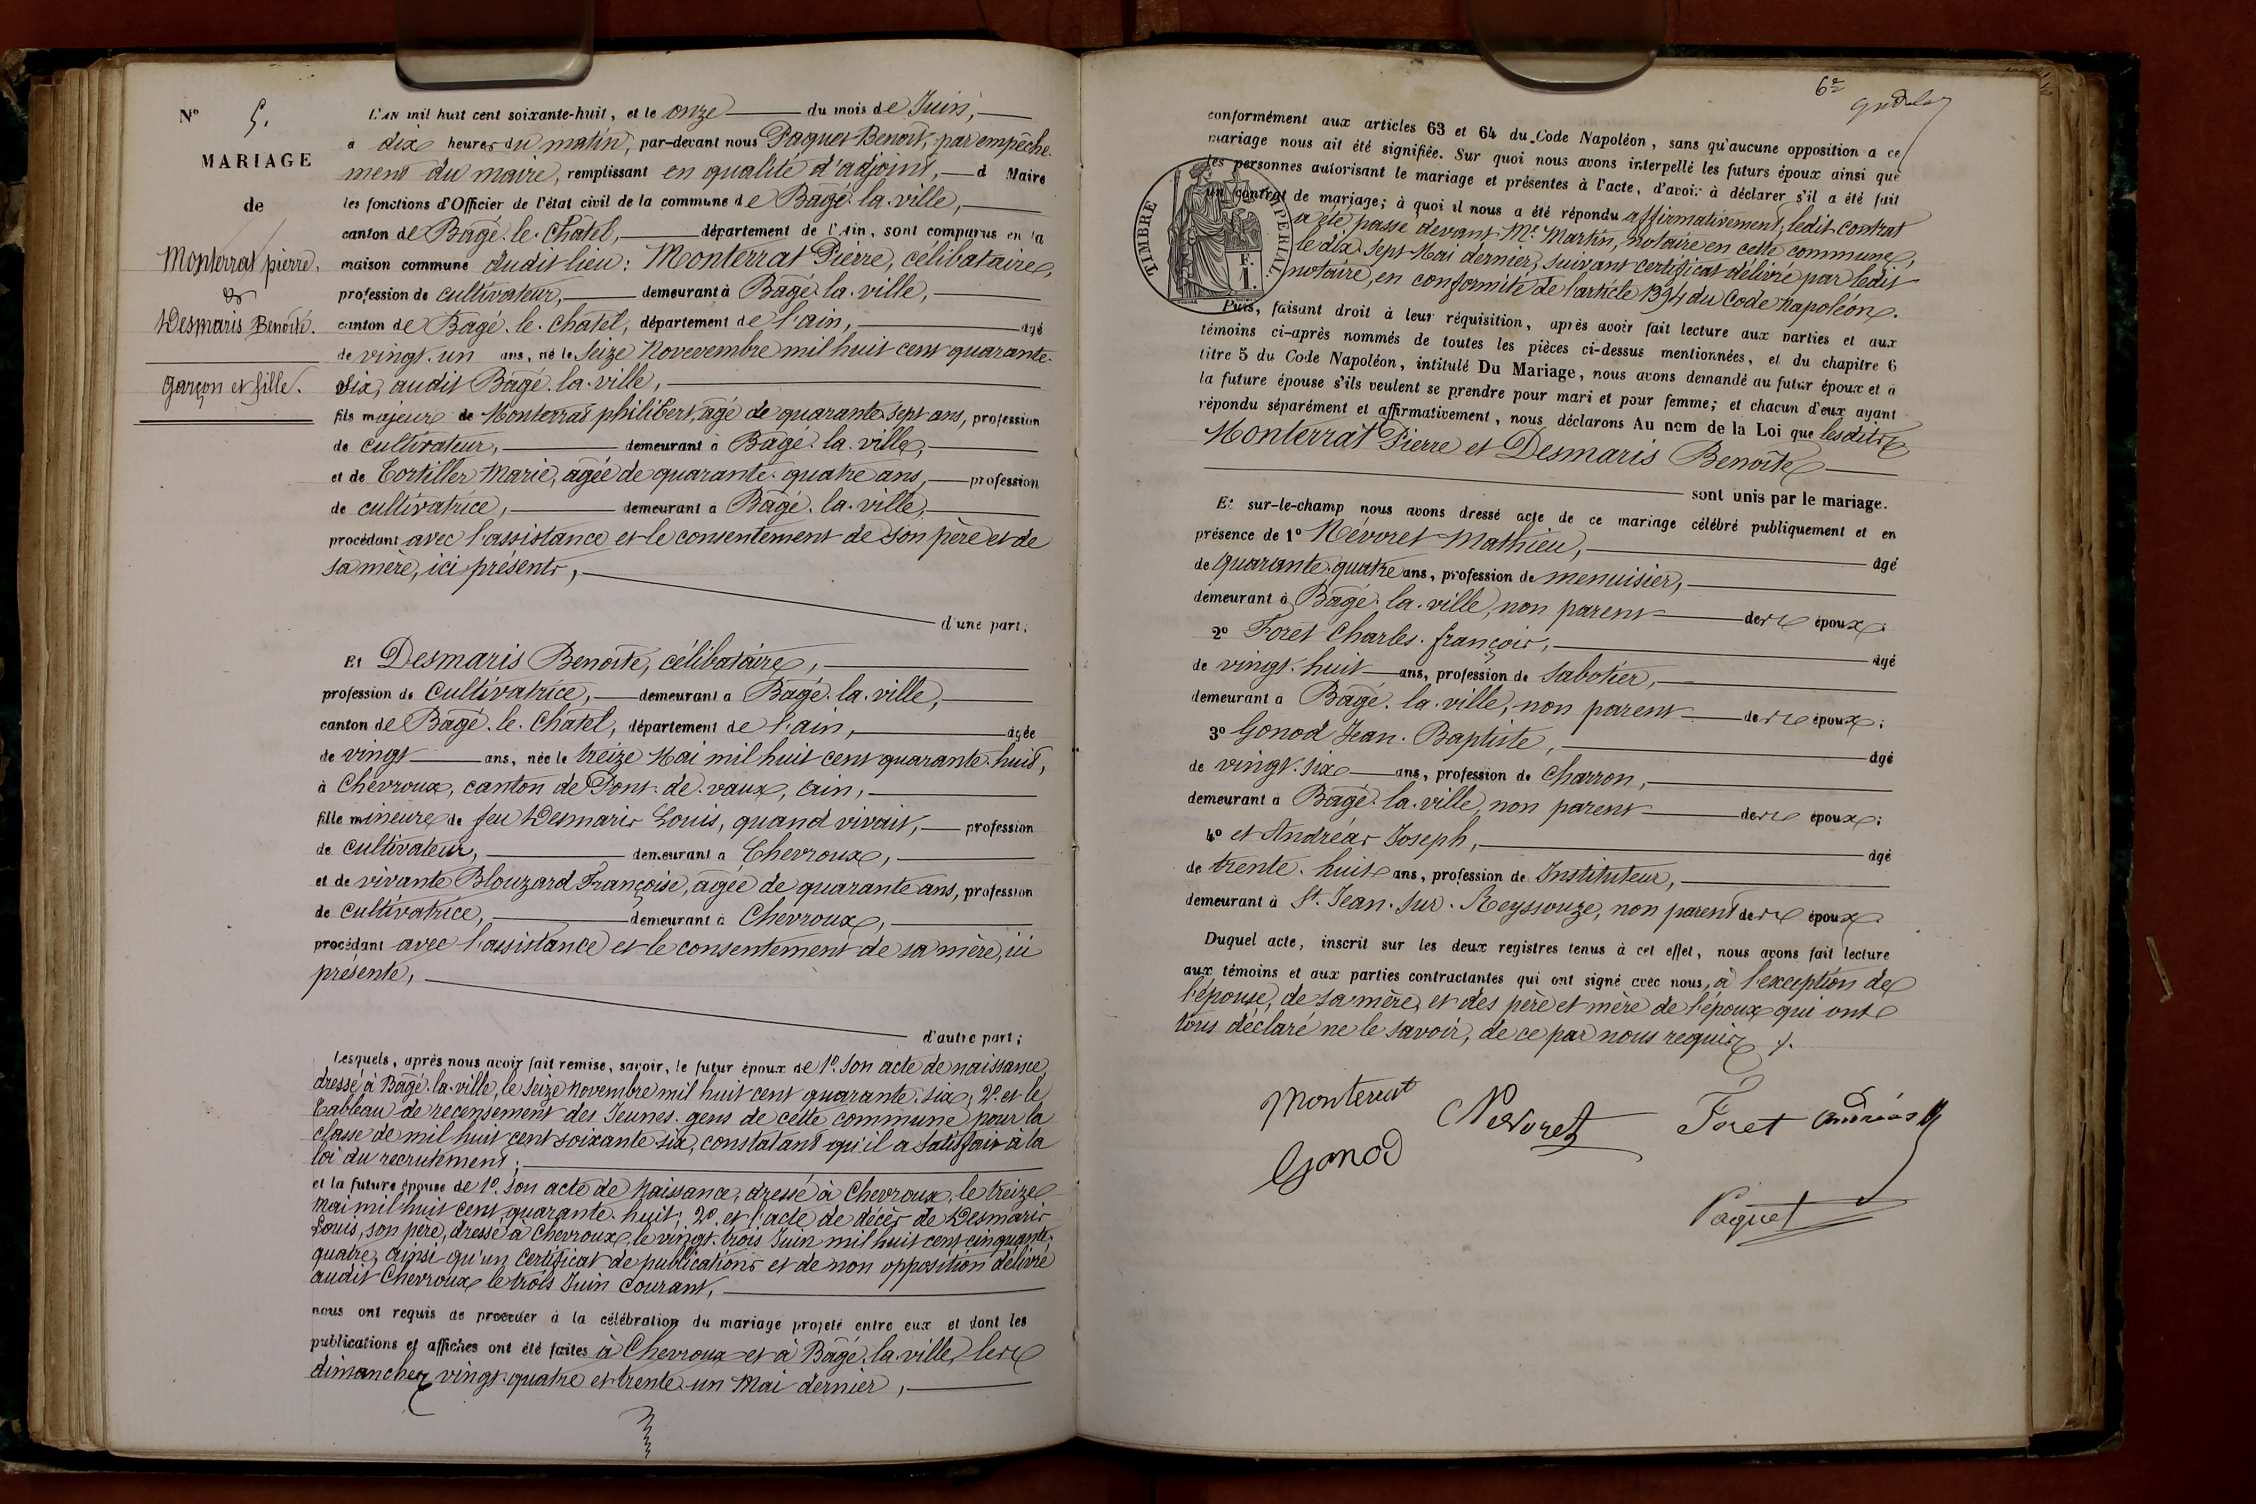 N° 5.
MARIAGE
de
Monterrat pierre,
&
Desmaris Benoîte.
garçon et fille.
L'AN mil huit cent soixante-huit, et le onze du mois de Juin,
à dix heures du matin, par-devant nous Paquet Benoit, par empêche-
ment du maire, remplissant en qualité d'adjoint, d Maire
les fonctions d'Officier de l'état civil de la commune de Bâgé-la-ville,
canton de Bâgé-le-Châtel, département de l'Ain, sont comparus en la
maison commune dudit lieu : Monterrat Pierre, célibataire,
profession de cultivateur, demeurant à Bâgé-la-ville,
canton de Bâgé-le-Châtel, département de l'ain, âgé
de vingt-un ans, né le Seize Novevembre mil huit cent quarante-
six, audit Bâgé-la-ville,
fils majeur de Monterrat philibert, âgé de quarante-sept ans, profession
de cultivateur, demeurant à Bâgé-la-ville,
et de Tortiller Marie, âgée de quarante-quatre ans, profession
de cultivatrice, demeurant à Bâgé-la-ville,
procédant avec l'assistance et le consentement de son père et de
sa mère, ici présents,
d'une part;
Et Desmaris Benoîte, célibataire,
profession de Cultivatrice, demeurant à Bâgé-la-ville,
canton de Bâgé-le-Châtel, département de l'ain, âgée
de vingt ans, née le treize Mai mil huit cent quarante-huit,
à Chevroux, canton de Pont-de-vaux, ain,
fille mineure de feu Desmaris Louis, quand vivait, profession
de cultivateur, demeurant à Chevroux,
et de vivante Blouzard Françoise, âgée de quarante ans, profession
de cultivatrice, demeurant à Chevroux,
procédant avec l'assistance et le consentement de sa mère, ici
présente,
d'autre part;
Lesquels, après nous avoir fait remise, savoir, le futur époux de 1°. Son acte de naissance,
dressé à Bâgé-la-ville, le Seize novembre mil huit cent quarante-six; 2°. et le
Tableau de recensement des Jeunes-gens de cette commune pour la
classe de mil huit cent soixante-six, constatant qu'il a satisfait à la
loi du recrutement;
et la future épouse de 1°. Son acte de Naissance, dressé à Chevroux, le treize
Mai mil huit cent quarante-huit; 2°. et l'acte de décès de Desmaris
Louis, son père, dressé à Chevroux, le vingt-trois Juin mil huit cent cinquante-
quatre, ainsi qu'un certificat de publications et de non opposition délivré
audit Chevroux le trois Juin courant,
nous ont requis de procéder à la célébration du mariage projeté entre eux et dont les
publications et affiches ont été faites à Chevroux et à Bâgé-la-ville, les
dimanches vingt-quatre et trente-un Mai dernier,
6e
conformément aux articles 63 et 64 du Code Napoléon, sans qu'aucune opposition à ce
mariage nous ait été signifiée. Sur quoi nous avons interpellé les futurs époux ainsi que
les personnes autorisant le mariage et présentes à l'acte, d'avoir à déclarer s'il a été fait
un contrat de mariage; à quoi il nous a été répondu affirmativement; ledit contrat
a été passé devant Me. Martin, notaire en cette commune,
le dix-sept Mai dernier, suivant certificat délivré par ledit
notaire, en conformité de l'article 1394 du Code Napoléon.
TIMBRE IMPERIAL
F.
1.
Puis, faisant droit à leur réquisition, après avoir fait lecture aux parties et aux
témoins ci-après nommés de toutes les pièces ci-dessus mentionnées, et du chapitre 6
titre 5 du Code Napoléon, intitulé Du Mariage, nous avons demandé au futur époux et à
la future épouse s'ils veulent se prendre pour mari et pour femme; et chacun d'eux ayant
répondu séparément et affirmativement, nous déclarons Au nom de la Loi que lesdits
Monterrat Pierre et Desmaris Benoîte
sont unis par le mariage.
Et sur-le-champ nous avons dressé acte de ce mariage célébré publiquement et en
présence de 1° Névoret Mathieu, âgé
de quarante-quatre ans, profession de menuisier,
demeurant à Bâgé-la-ville, non parent des époux;
2° Foret Charles-françois, âgé
de vingt-huit ans, profession de Sabotier,
demeurant à Bâgé-la-ville, non parent des époux;
3° Gonod Jean-Baptiste, âgé
de vingt-six ans, profession de charron,
demeurant à Bâgé-la-ville, non parent des époux;
4° et Andréas Joseph, âgé
de trente-huit ans, profession de Instituteur,
demeurant à St. Jean-sur-Reyssouze, non parent des époux.
Duquel acte, inscrit sur les deux registres tenus à cet effet, nous avons fait lecture
aux témoins et aux parties contractantes qui ont signé avec nous, à l'exception de
l'épouse, de sa mère, et des père et mère de l'époux qui ont
tous déclaré ne le savoir, de ce par nous requis.
Monterrat Nevoret Foret Andréas
Gonod
Paquet